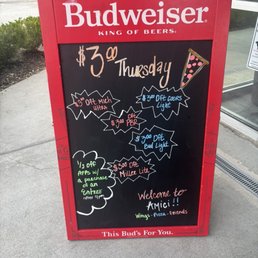 Budweiser
KING OF BEERS.
$3.00 Thursday
$3 Dft Mich
Ultra
$3.00 Dft Coors
Light
$3.00 Dft
PBR
$3.00 Dft
Bud Light
$3.00 Dft
Miller Lite
1/2 off
Apps w/
a purchase
of an
Entree
Welcome to
Amici!!
Wings - Pizza - Friends
This Bud's For You.